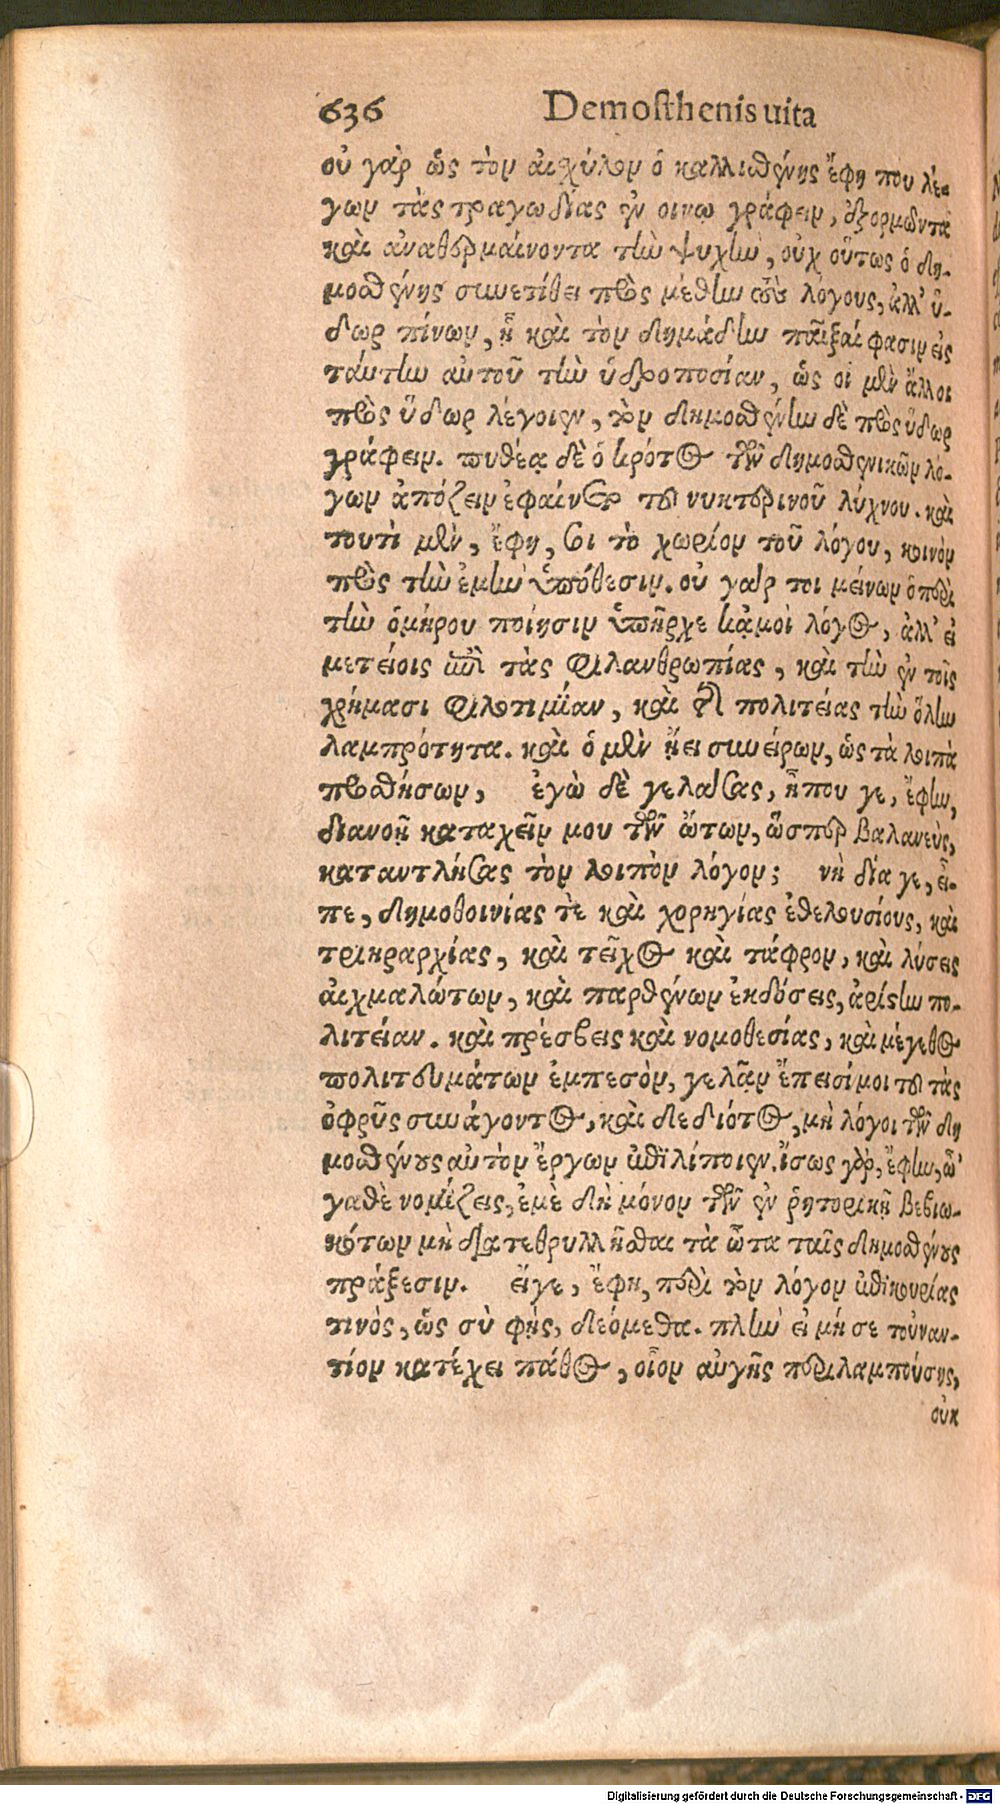 636 Demosthenis uita
οὐ γὰρ ὡς τὸν αἰσχύλον ὁ καλλισθένης ἔφη που λέ-
γων τὰς τραγῳδίας ἐν οινῳ γράφειν, ἐξορμῶντα
καὶ ἀναθερμαίνοντα τὴν ψυχὴν, οὐχ οὕτως ὁ δη-
μοσθένης συνετίθει πρὸς μέθην τοὺς λόγους, ἀλλ' ὕ-
δωρ πίνων, ᾗ καὶ τὸν δημάδην παῖξαί φασιν εἰς
ταύτην αὐτοῦ τὴν ὑδροποσίαν, ὡς οἱ μὲν ἄλλοι
πρὸς ὕδωρ λέγοιεν, τὸν δημοσθένην δὲ πρὸς ὕδωρ
γράφειν. πυθέᾳ δὲ ὁ κρότος τῶν δημοσθενικῶν λό-
γων ἀπόζειν ἐφαίνετο τοῦ νυκτερινοῦ λύχνου. καὶ
τουτὶ μὲν, ἔφη, σοι τὸ χωρίον τοῦ λόγου, κοινὸν
πρὸς τὴν ἐμὴν ὑπόθεσιν. οὐ γάρ τοι μείνων ὁ περὶ
τὴν ὁμήρου ποίησιν ὑπῆρχε κᾀμοὶ λόγος, ἀλλ' εἰ
μετείοις ἐπὶ τὰς φιλανθρωπίας, καὶ τὴν ἐν τοῖς
χρήμασι φιλοτιμίαν, καὶ τῆς πολιτείας τὴν ὅλην
λαμπρότητα. καὶ ὁ μὲν ᾔει συνείρων, ὡς τὰ λοιπὰ
προσθήσων, ἐγὼ δὲ γελάσας, ἦπου γε, ἔφην,
διανοῇ καταχεῖν μου τῶν ὤτων, ὥσπερ βαλανεὺς,
καταντλήσας τὸν λοιπὸν λόγον; νὴ δία γε, εἶ-
πε, δημοθοινίας τὲ καὶ χορηγίας ἐθελουσίους, καὶ
τριηραρχίας, καὶ τεῖχος καὶ τάφρον, καὶ λύσεις
αἰχμαλώτων, καὶ παρθένων ἐκδόσεις, ἀρίστην πο-
λιτείαν. καὶ πρέσβεις καὶ νομοθεσίας, καὶ μέγεθος
πολιτευμάτων ἐμπεσὸν, γελᾶν ἔπεισί μοι τοῦ τὰς
ὀφρῦς συνάγοντος, καὶ δεδιότος, μὴ λόγοι τῶν δη
μοσθένους αὐτὸν ἔργων ἐπιλίποιεν. ἴσως γὰρ, ἔφην, ὦ'
γαθὲ νομίζεις, ἐμὲ δὴ μόνον τῶν ἐν ῥητορικῇ βεβιω-
κότων μὴ διατεθρυλλῆσθαι τὰ ὦτα ταῖς δημοσθένους
πράξεσιν. εἴγε, ἔφη, περὶ τὸν λόγον ἐπικουρίας
τινὸς, ὡς σὺ φῂς, δεόμεθα. πλὴν εἰ μή σε τοὐναν-
τίον κατέχει πάθος, οἷον αὐγῆς περιλαμπούσης,
οὐκ
Digitalisierung gefördert durch die Deutsche Forschungsgemeinschaft - DFG